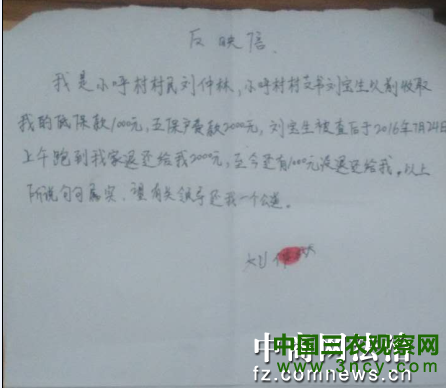 反映信.
我是小呼村村民刘仲林,小呼村村支书刘宝生以前收取
我的低保款1000元,五保户费款2000元,刘宝生被查后于2016年7月24日
上午跑到我家退还给我2000元,至今还有1000元没退还给我。以上
所说句句属实,望有关领导还我一个公道。
刘仲林
中国三农观察网
www.3ncy.com
fz.comnews.cn